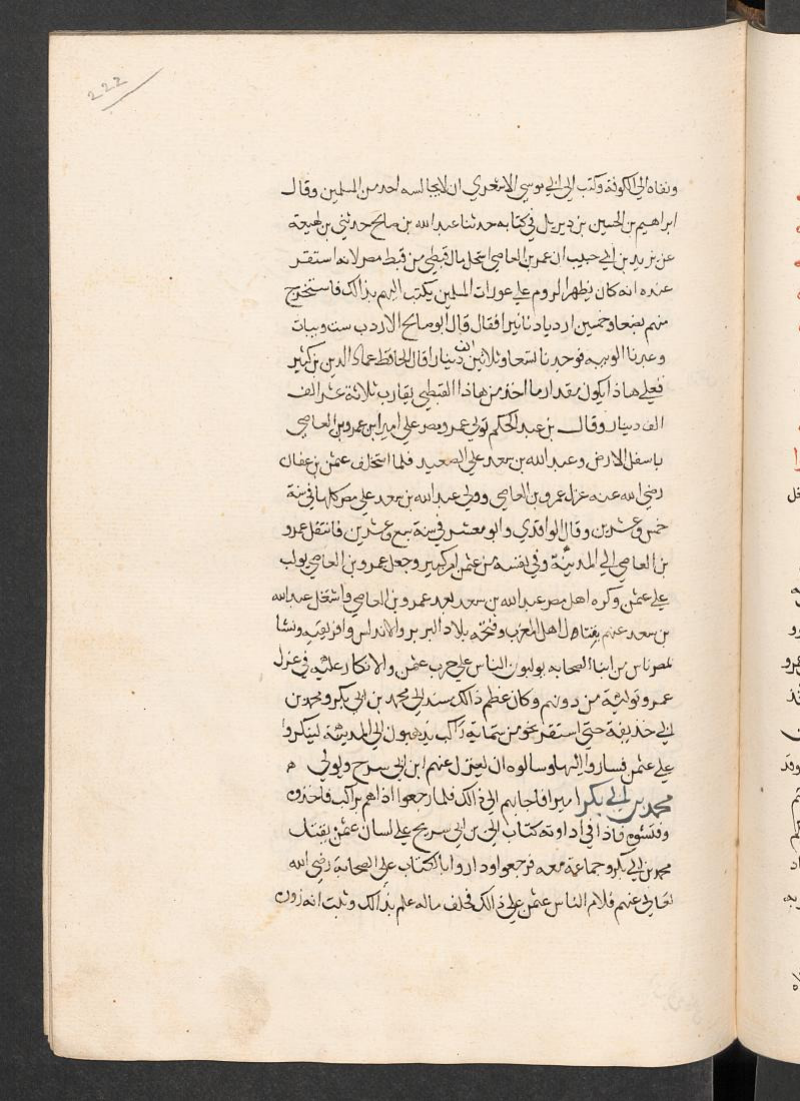 222
ونفاه الي الكوفة وكتب الي ابي موسي الاشعري ان لا يجالسه احد من المسلمين وقال
ابراهيم بن الحسين بن ديريل في كتابه حدثنا عبد الله بن صالح حدثني بن لهيعة
عن يزيد بن ابي حبيب ان عمر بن العاصي استحل مال قبطي من قبط مصر لانه استقر
عنده انه كان يظهر الروم علي عورات المسلمين يكتب اليهم بذالك فاستخرج
منهم بضعا وخمسين اردبا دنانير افقال قال ابو صالح الاردب ست ويبات
وعبرنا الويبه فوجدنا تسعا وثلاثين الف دينار اقال الحافظ عماد الدين بن كثير
فعلي هاذا يكون مقدار ما اخذ من هاذا القبطي يقارب ثلاثة عشر الف
الف دينار وقال بن عبد الحكم تولي عمر ومصر علي اميرا بن عمرو بن العاصي
باسفل الارض وعبد الله بن سعد علي الصعيد فلما استخلف عثمن بن عفان
رضي الله عنه عزل عمرو بن العاصي وولي عبد الله بن سعد علي مصر كلها في سنة
خمس وعشرين وقال الواقدي وابو معشر في سنة سبع وعشرين فانتقل عمرو
بن العاصي الي المدينة وفي نفسه من عثمن امر كبير وجعل عمرو بن العاصي يولب
علي عثمن وكره اهل مصر عبد الله بن سعد بعد عمرو بن العاصي واشتغل عبد الله
بن سعد عنهم بقتال اهل المغرب وفتحه بلاد البربر والاندلس وافريقيه ونشا
بمصر ناس من ابنا الصحابه يولبون الناس علي حرب عثمن والانكار عليه في عزل
عمرو وتولية من دونهم وكان عظم ذالك سند الي محمد بن ابي بكر ومحمد بن
ابي حذيفة حتي استقر نحو من ستماية راكب يذهبون الي المدينة لينكروا
علي عثمن فساروا اليها وسالوه ان يعزل عنهم ابن ابي سرح ويولي ه
محمد بن ابي بكر اميرا فاجابهم الي ذالك فلما رجعوا اذا هم براكب فاخذوه
وفتشوه فاذا في اداوته كتاب الي بن ابي سريح علي لسان عثمن بقتل
محمد بن ابي بكر وجماعة معه فرجعوا وداروا بالكتاب علي الصحابة رضي الله
تعالي عنهم فلام الناس عثمن علي ذالك فحلف ماله علم بذالك وثبت انه زون